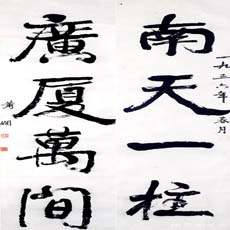 南天一柱
一九 六年春月
廣厦萬間
蕭嫻